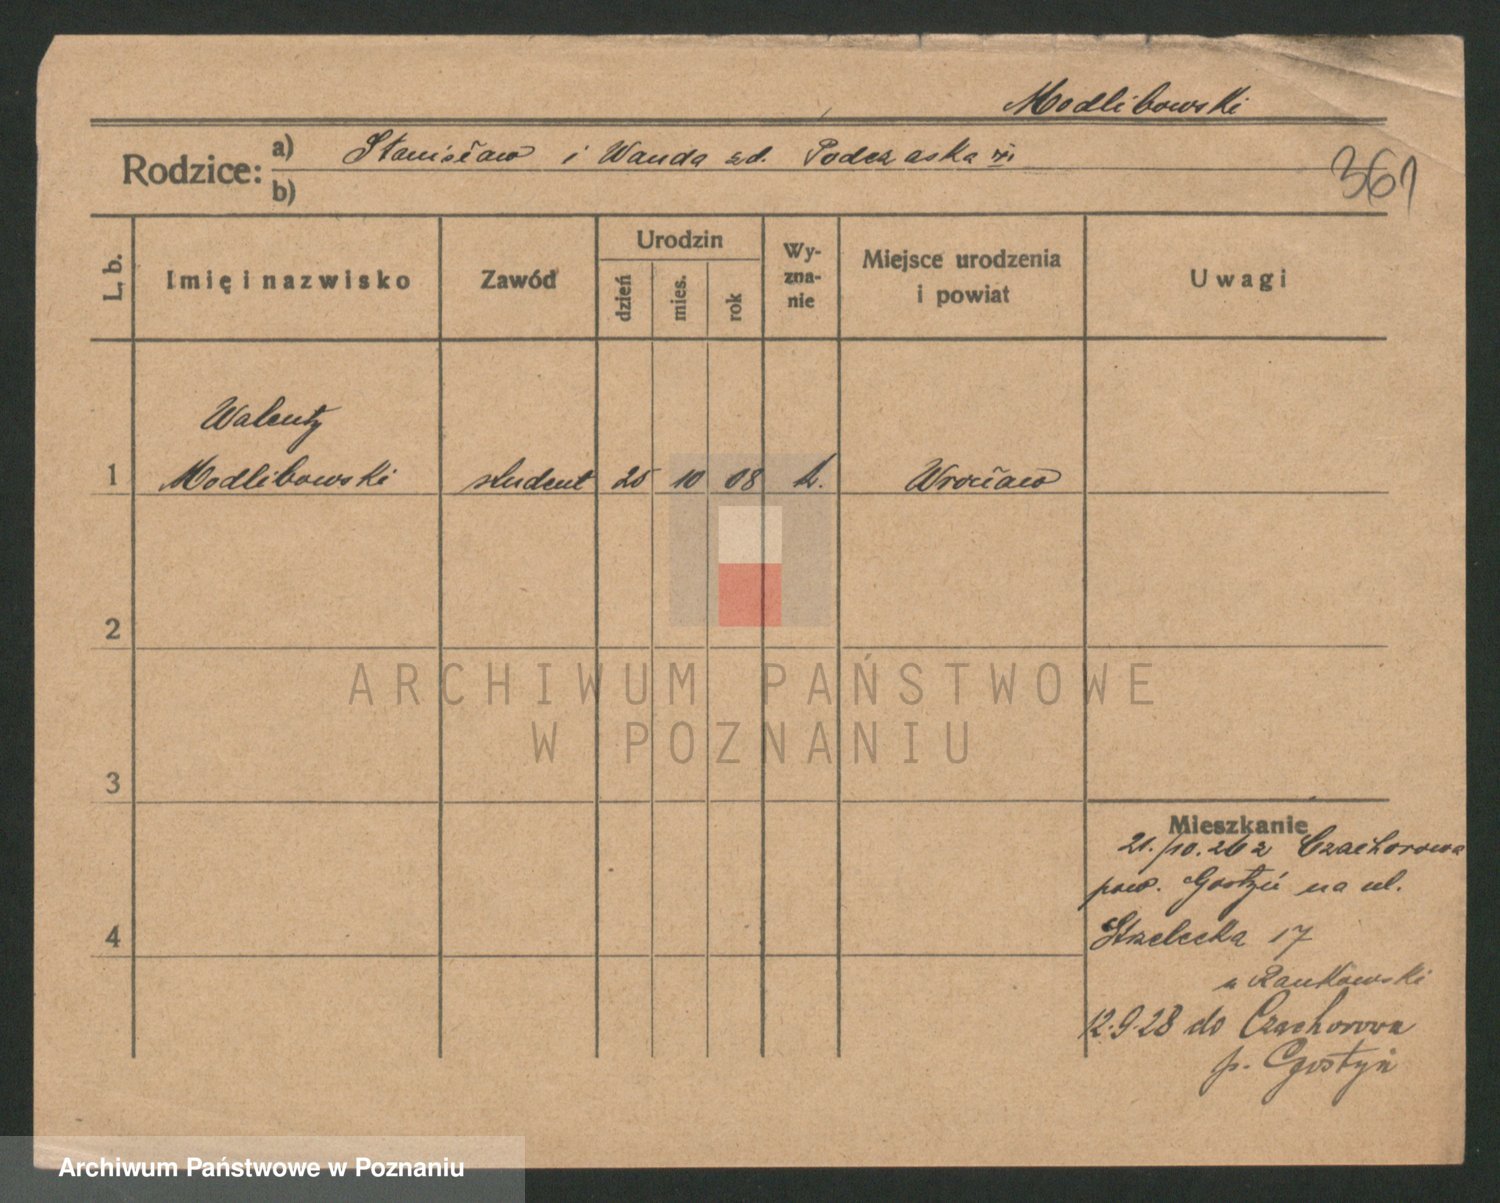 Modlibowski
Rodzice: a) Stanisław i Wanda zd. Podczaska
b)
361
L. b. Imię i nazwisko Zawód Urodzin dzień mies. rok Wyzna-nie Miejsce urodzenia i powiat Uwagi
Walenty
1 Modlibowski student 25 10 08 k. Wrocław
2
ARCHIWUM PAŃSTWOWE
W POZNANIU
3
Mieszkanie
21./10.26 z Czachorowa
pow. Gostyń na ul.
4 Strzelecka 17
u Rankowski
12.9.28 do Czachorowa
p. Gostyń
Archiwum Państwowe w Poznaniu